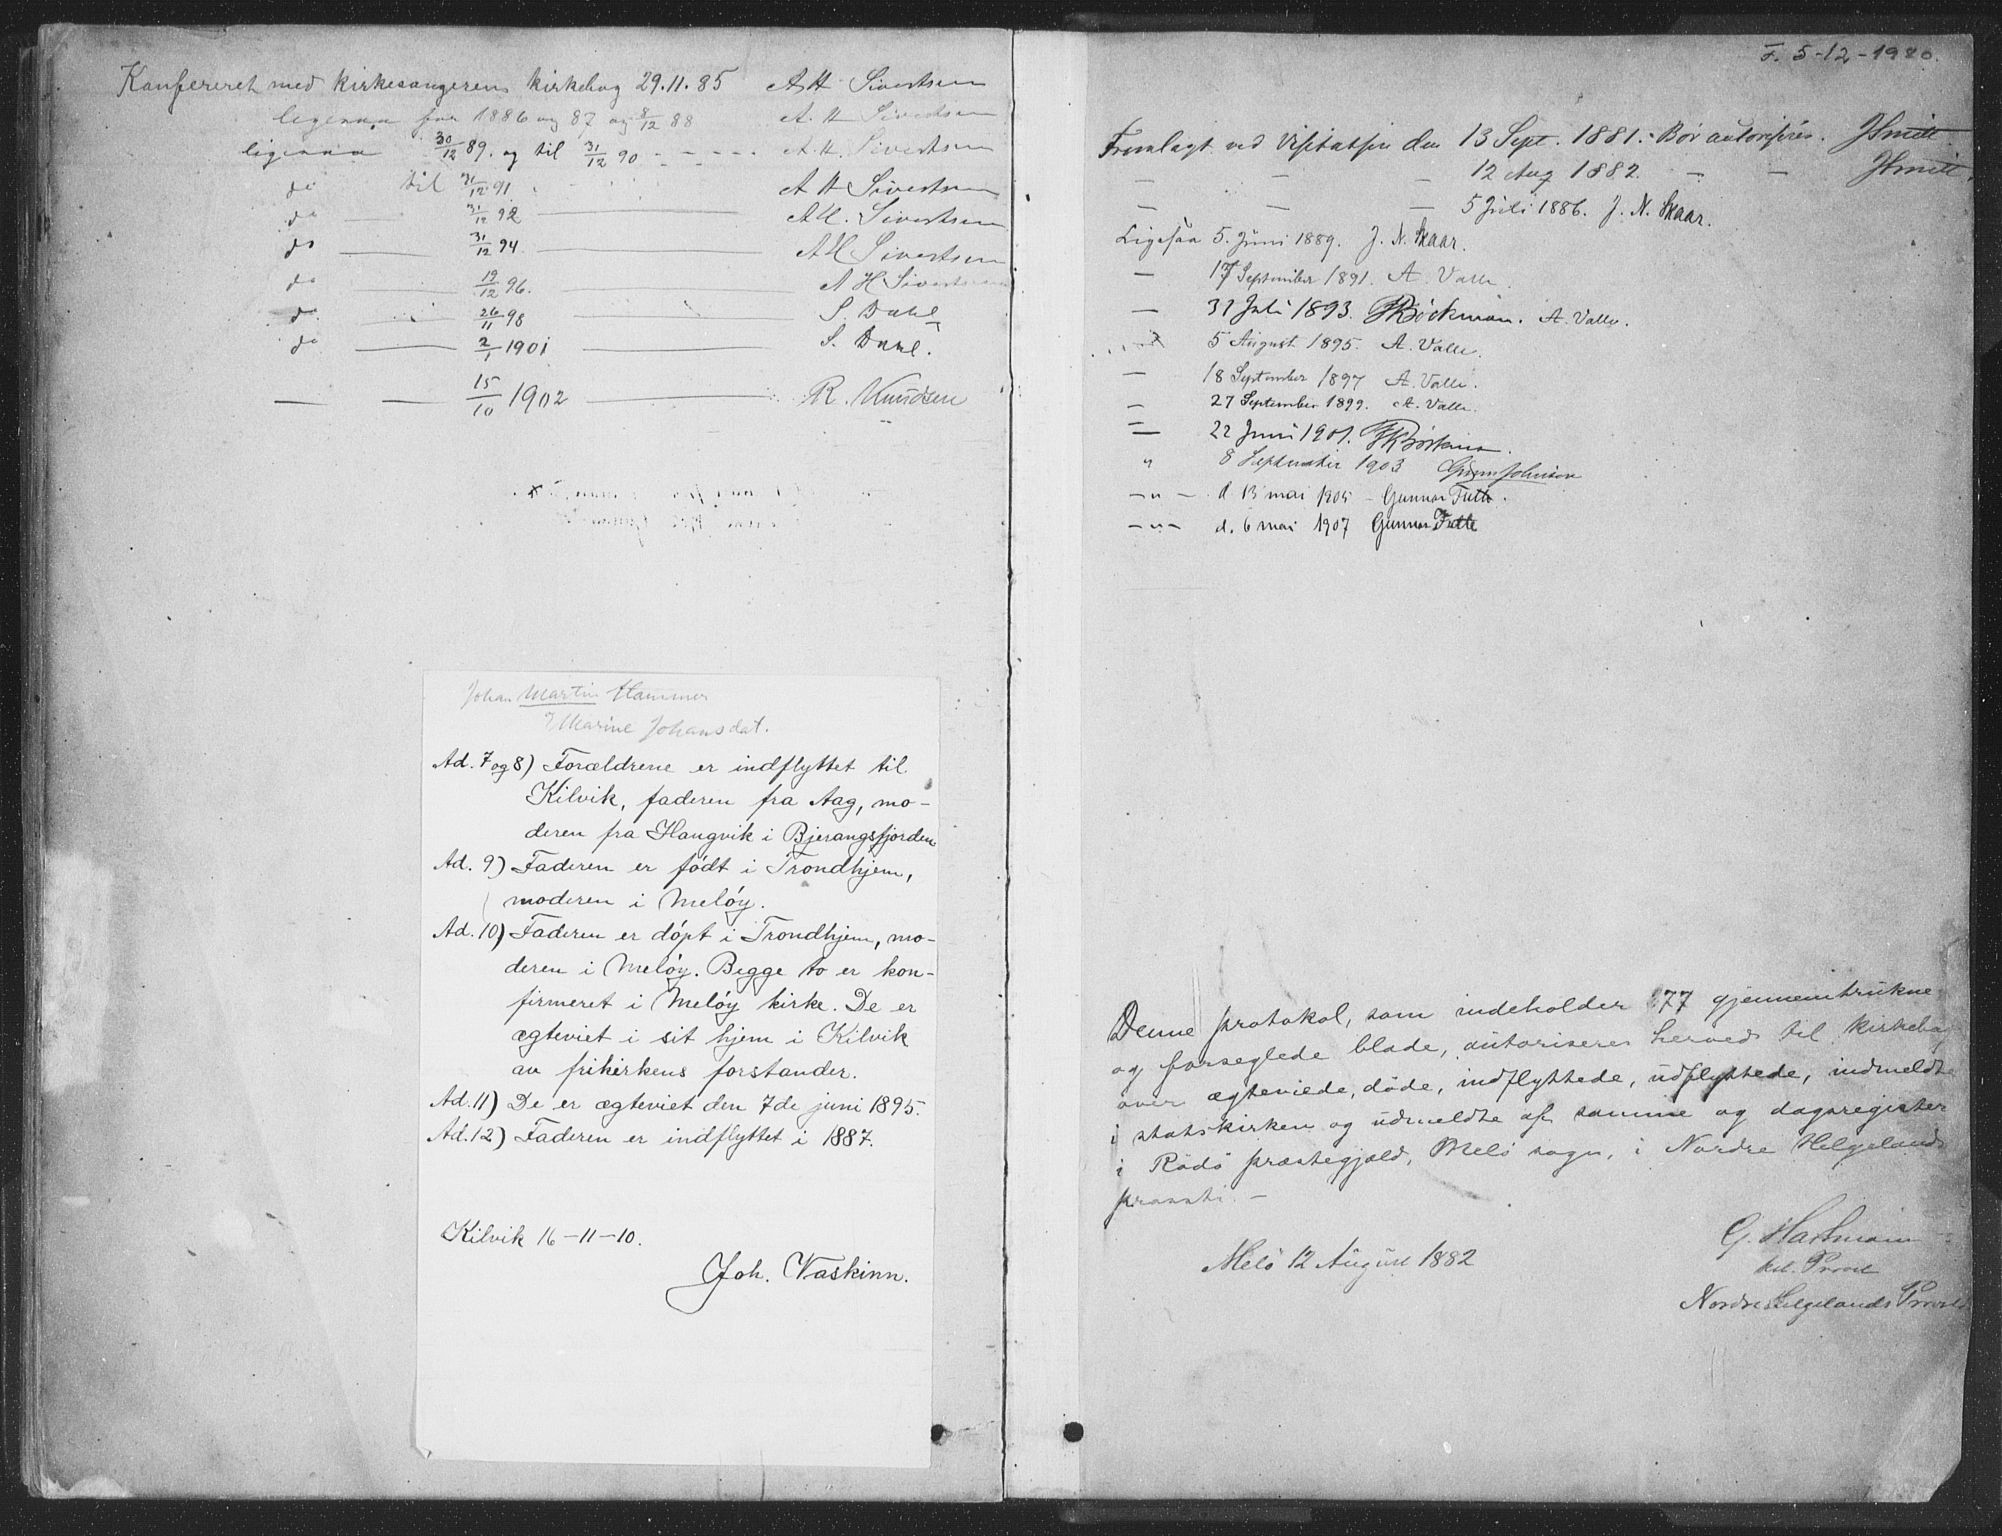 Konfereret med kirkesangerens kirkebog 29.11.85 A H Sivertsen
ligesaa for 1886 og 87 og 8/12 88 A. H Sivertsen
ligesaa 30/12 89. og til 31/12 90 - - - - A. H. Sivertsen
do til 31/12 91 A H Sivertsen
do — 31/12 92 — A H. Sivertsen
do — 31/12 94 — A H Sivertsen
do — 19/12 96. — A H Sivertsen
do — 26/11 98 — S. Dahl
do — 2/1 1901 — S. Dahl.
— — 15/10 1902 — R. Knudsen
Johan Martin Hammer
og Marine Johansdat.
Ad. 7 og 8) Forældrene er indflyttet til
Kilvik, faderen fra Aag, mo-
deren fra Haugvik i Bjerangsfjorden
Ad. 9) Faderen er født i Trondhjem,
moderen i Meløy.
Ad. 10) Faderen er døpt i Trondhjem, mo-
deren i Meløy. Begge to er kon-
firmeret i Meløy kirke. De er
ægteviet i sit hjem i Kilvik
av frikirkens forstander.
Ad. 11) De er ægteviet den 7de juni 1895.
Ad. 12) Faderen er indflyttet i 1887.
Kilvik 16-11-10.
Joh. Vaskinn.
F. 5-12-1980.
Fremlagt ved Visitatsen den 13 Sept. 1881. Bør autoriseres. JSmitt
— — — 12 Aug 1882. — — JSmitt.
— — — 5 Juli 1886. J. N. Skaar.
Ligesaa 5. Juni 1889. J. N. Skaar.
— 17 September 1891. A. Valle.
— 31 Juli 1893. PBöckman. A. Valle.
5 August 1895. A. Valle.
— 18 September 1897 A. Valle.
— 27 September 1899. A. Valle.
— 22 Juni 1901. PBöckman.
" 8 September 1903
— " — d. 13 mai 1905 - Gunnar Tutle.
— " — d. 6 mai 1907 Gunnar Tutle
Denne protokol, som indeholder 177 gjennemtrukne
og forseglede blade, autoriseres herved til kirkebog
over ægteviede, døde, indflyttede, udflyttede, indmeldte
i statskirken og udmeldte af samme og dagsregister
i Rødø præstegjæld, Melø sogn, i Nordre Helgelands
provsti. —
Melø 12 August 1882
G. Hartmann
kst. Provst
Nordre Helgelands Provsti